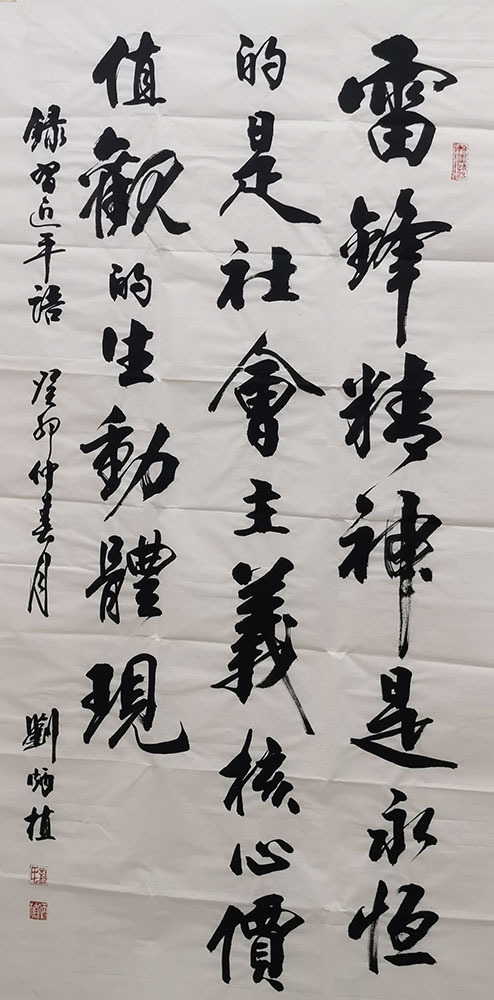 雷鋒精神是永恒
的是社會主義核心價
值觀的生動體現
録習近平語 癸卯仲春月
劉炳植